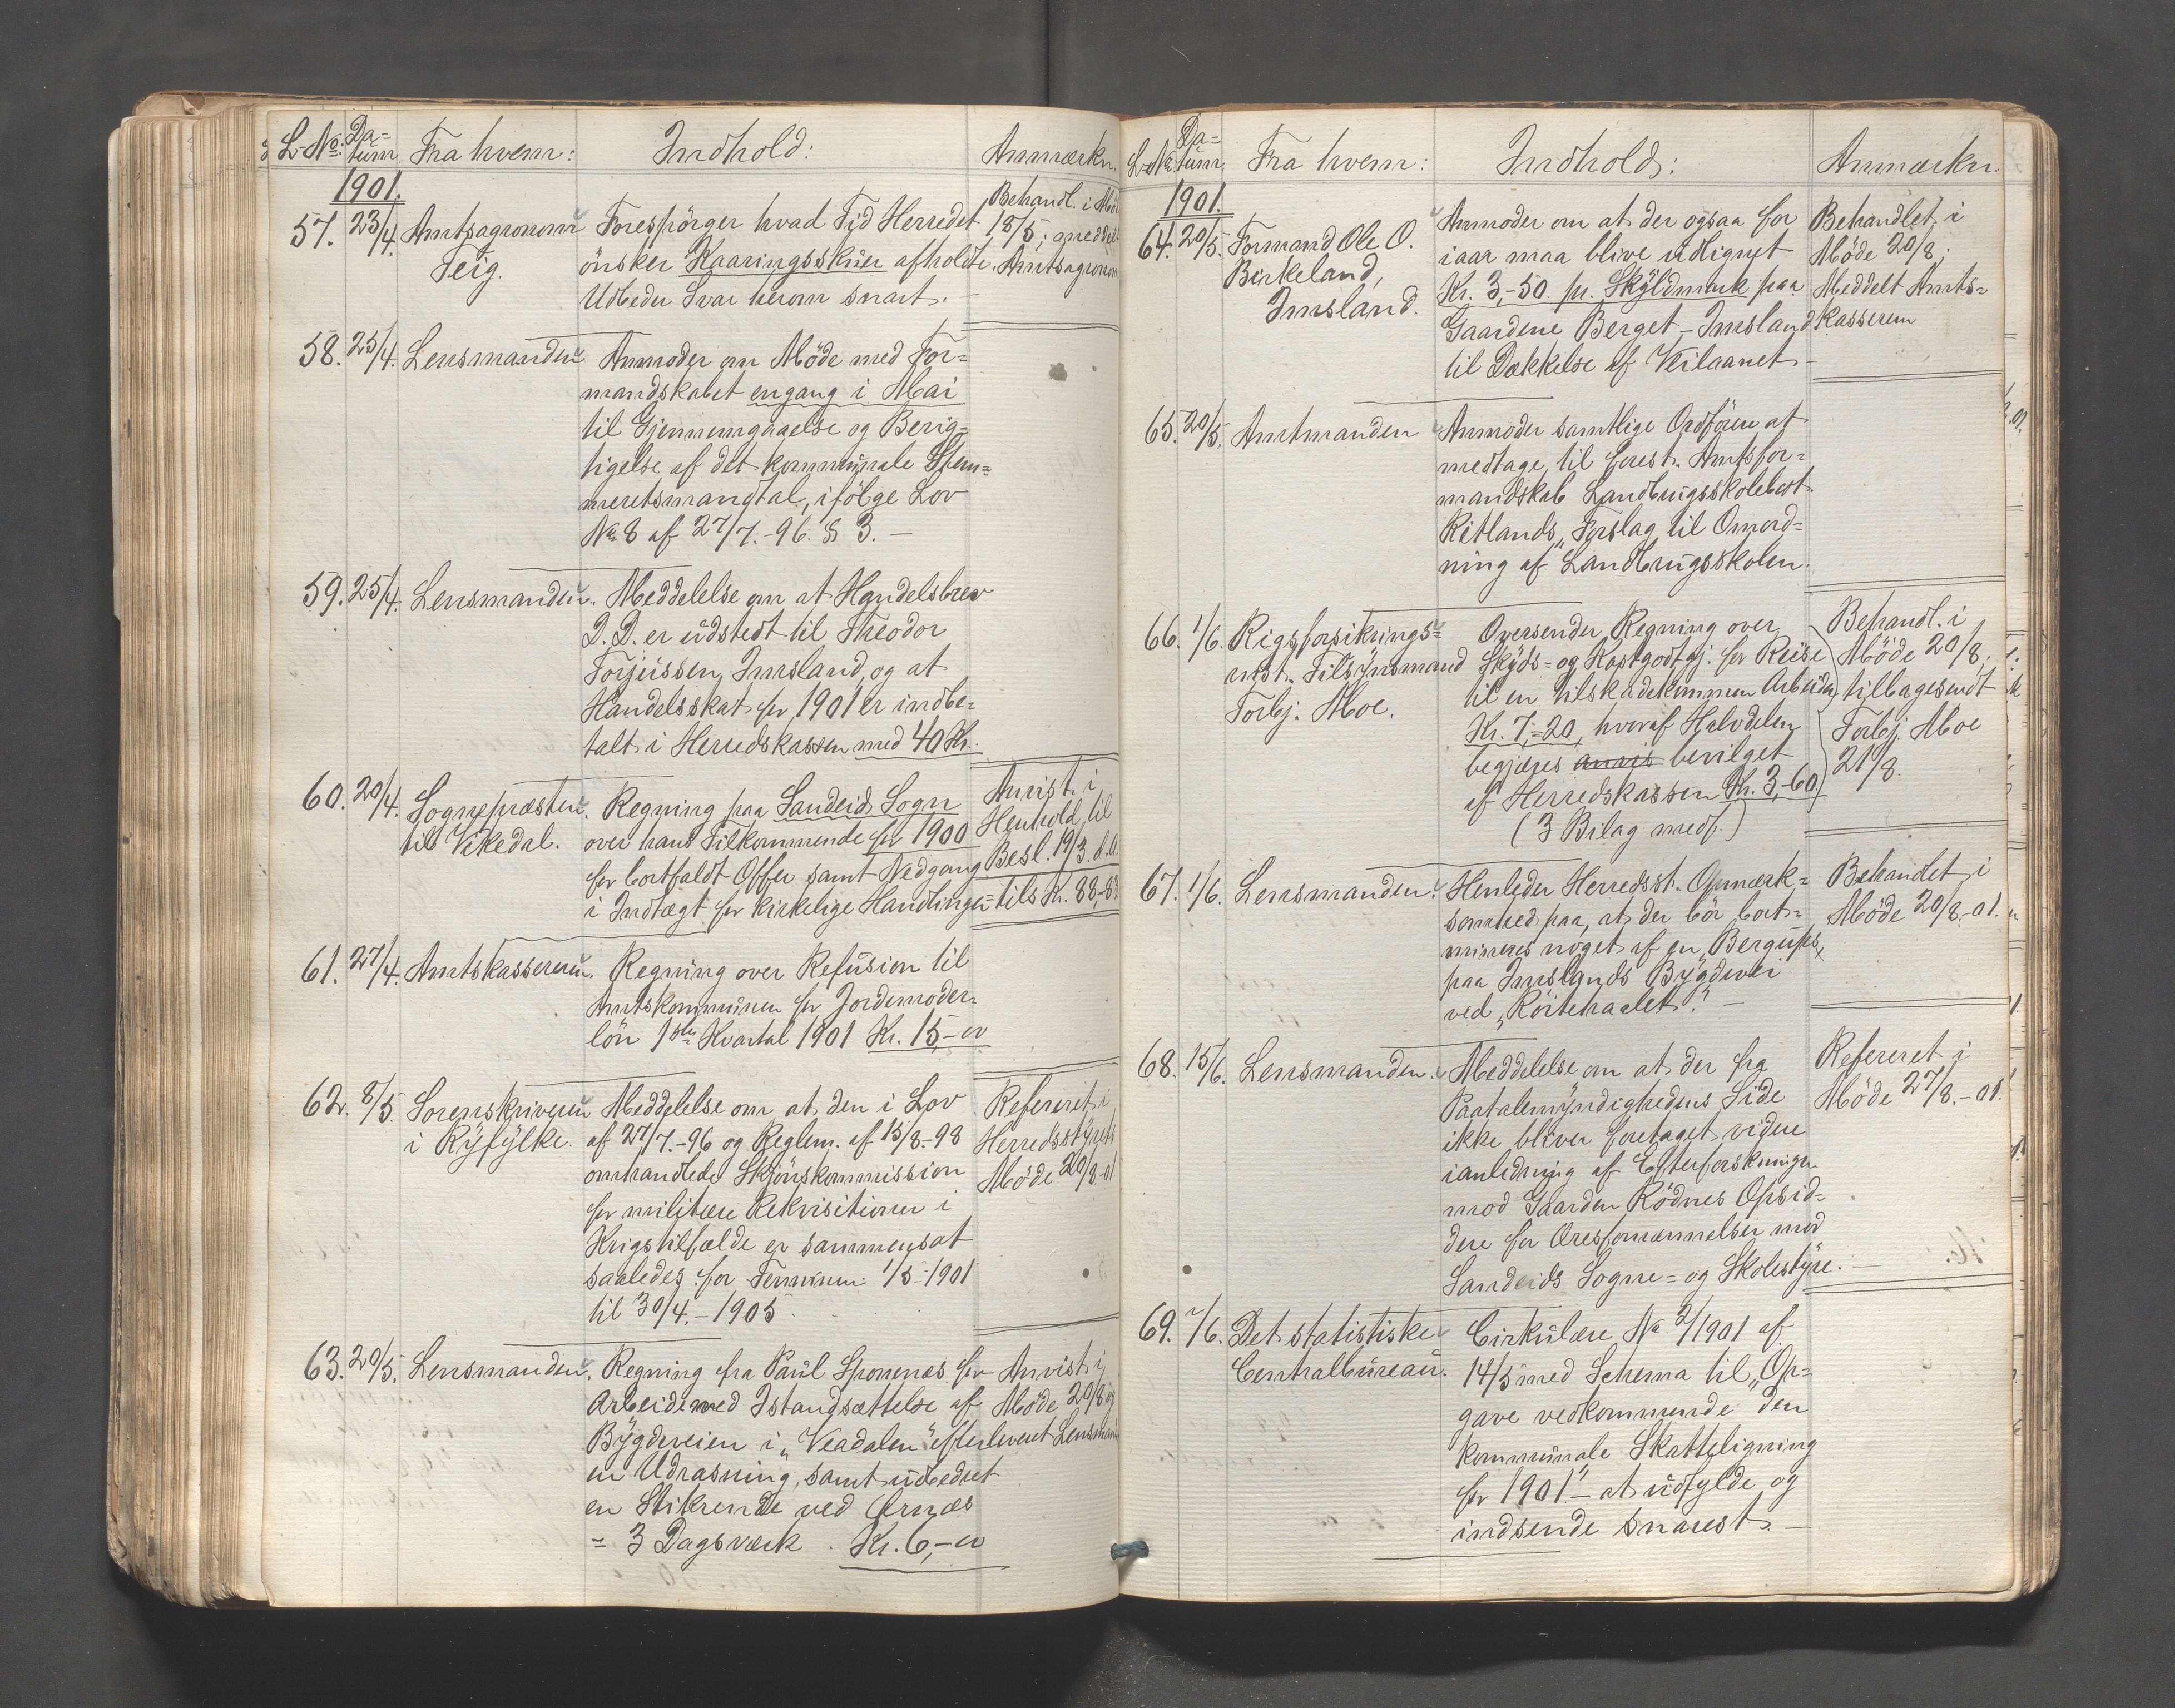 L-No: Da= tum Fra hvem: Indhold: Anmærkn.
1901.
57. 23/4. Amtsagronom Teig.
Forespörger hvad Tid Herredet
önsker Kaaringsskuer afholdte.
Udbeder Svar herom snart. –
Behandl. i
18/5;
58. 25/4. Lensmanden
Anmoder om Möde med For=
mandskabet engang i Mai
til Gjennemgaaelse og Berig=
tigelse af det kommunale Stem=
meretsmandtal, ifölge Lov
No 8 af 27/7.-96. § 3. –
59. 25/4. Lensmanden.
Meddelelse om at Handelsbrev
D. D. er udstedt til Theodor
Torjeissen, Imsland, og at
Handelsskat for 1901 er indbe=
talt i Herredskassen med 40 Kr.
60. 20/4. Sognepræsten
til Vikedal.
Regning paa Sandeid Sogn
over hans Tilkommende for 1900
for bortfaldt Offer samt Nedgang
i Indtægt for kirkelige Handlinger =
Anvist i
Henhold til
Besl. 19/3. d.A.
tils Kr. 88,-83
61. 27/4. Amtskassereren.
Regning over Refusion til
Amtskommunen for Jordemoder=
lön 1ste Kvartal 1901 Kr. 15,-
62. 8/5. Sorenskriveren
i Ryfylke.
Meddelelse om at den i Lov
af 27/7.-96 og Reglem. af 15/8.-98
omhandlede Skjönskommission
for militære Rekvisitioner i
Krigstilfælde er sammensat
saaledes for Terminen 1/5-1901
til 30/4.-1905.
Refereret i
Herredsstyrets
Möde 20/8.-01
63. 20/5. Lensmanden.
Regning fra Paul Sponenæs for
Arbeide med Istandsættelse af
Bygdeveien i „Veadalen" efter
en Udrasning, samt udbedret
en Stikrende ved Ørnæs
= 3 Dagsværk. Kr. 6,-
Anvist i
Möde 20/8 og
leveret
L-No Da= tum. Fra hvem: Indhold: Anmærkn.
1901.
64. 20/5. Formand Ole O.
Birkeland,
Imsland.
Anmoder om at der ogsaa for
iaar maa blive udlignet
Kr. 3,-50 pr. Skyldmark paa
Gaardene Berget – Imsland
til Dækkelse af Veilaanet –
Behandlet i
Möde 20/8;
Meddelt Amts=
kasserern
65. 20/5. Amtmanden
Anmoder samtlige Ordförere at
medtage til forest. Amtsfor=
mandskab Landbrugsskolebest.
Ritlands „Forslag til Omord=
ning af Landbrugsskolen.
66. 1/6. Rigsforsikrings=
anst. Tilsynsmand
Torbj. Moe.
Oversender Regning over
Skyds= og Kostgodtgj. for Reise
til en tilskadekommen Arbeider
Kr. 7,-20, hvoraf Halvdelen
begjæres anvis bevilget
af Herredskassen Kr. 3,-60
(3 Bilag medf.)
Behandl. i
Möde 20/8;
tilbagesendt
Torbj. Moe
21/8.
67. 1/6. Lensmanden.
Henleder Herredsst. Opmærk=
somhed paa, at der bör bort=
mineres noget af en Bergufs,
paa Imslands Bygdevei
ved „Röitehaalet." –
Behandet i
Möde 20/8.-01.
68. 15/6. Lensmanden.
Meddelelse om at der fra
Paatalemyndighedens Side
ikke bliver foretaget videre
ianledning af Efterforskningen
mod Gaarden Rödnes Opsid=
dere for Æresfornærmelser mod
Sandeids Sogne= og Skolestyre. –
Refereret i
Möde 27/8.-01.
69. /6. Det statistiske
Centralbureau.
Cirkulære No 2/1901 af
14/5 med Schema til „Op=
gave vedkommende den
kommunale Skatteligning
for 1901" – at udfylde og
indsende snarest. –